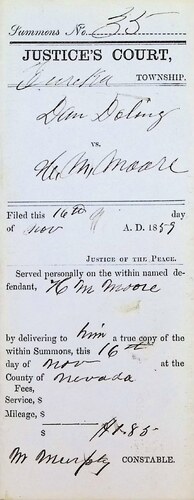 Summons No. 35
JUSTICE'S COURT,
Eureka TOWNSHIP.
Dan Doling
vs.
H. M. Moore
Filed this 16th day
of Nov A. D. 1859
JUSTICE OF THE PEACE.
Served personally on the within named de-
fendant, H M Moore
by delivering to him a true copy of the
within Summons, this 16th
day of nov at the
County of Nevada
Fees,
Service, $
Mileage, $
$ 4.85
M Murphy CONSTABLE.